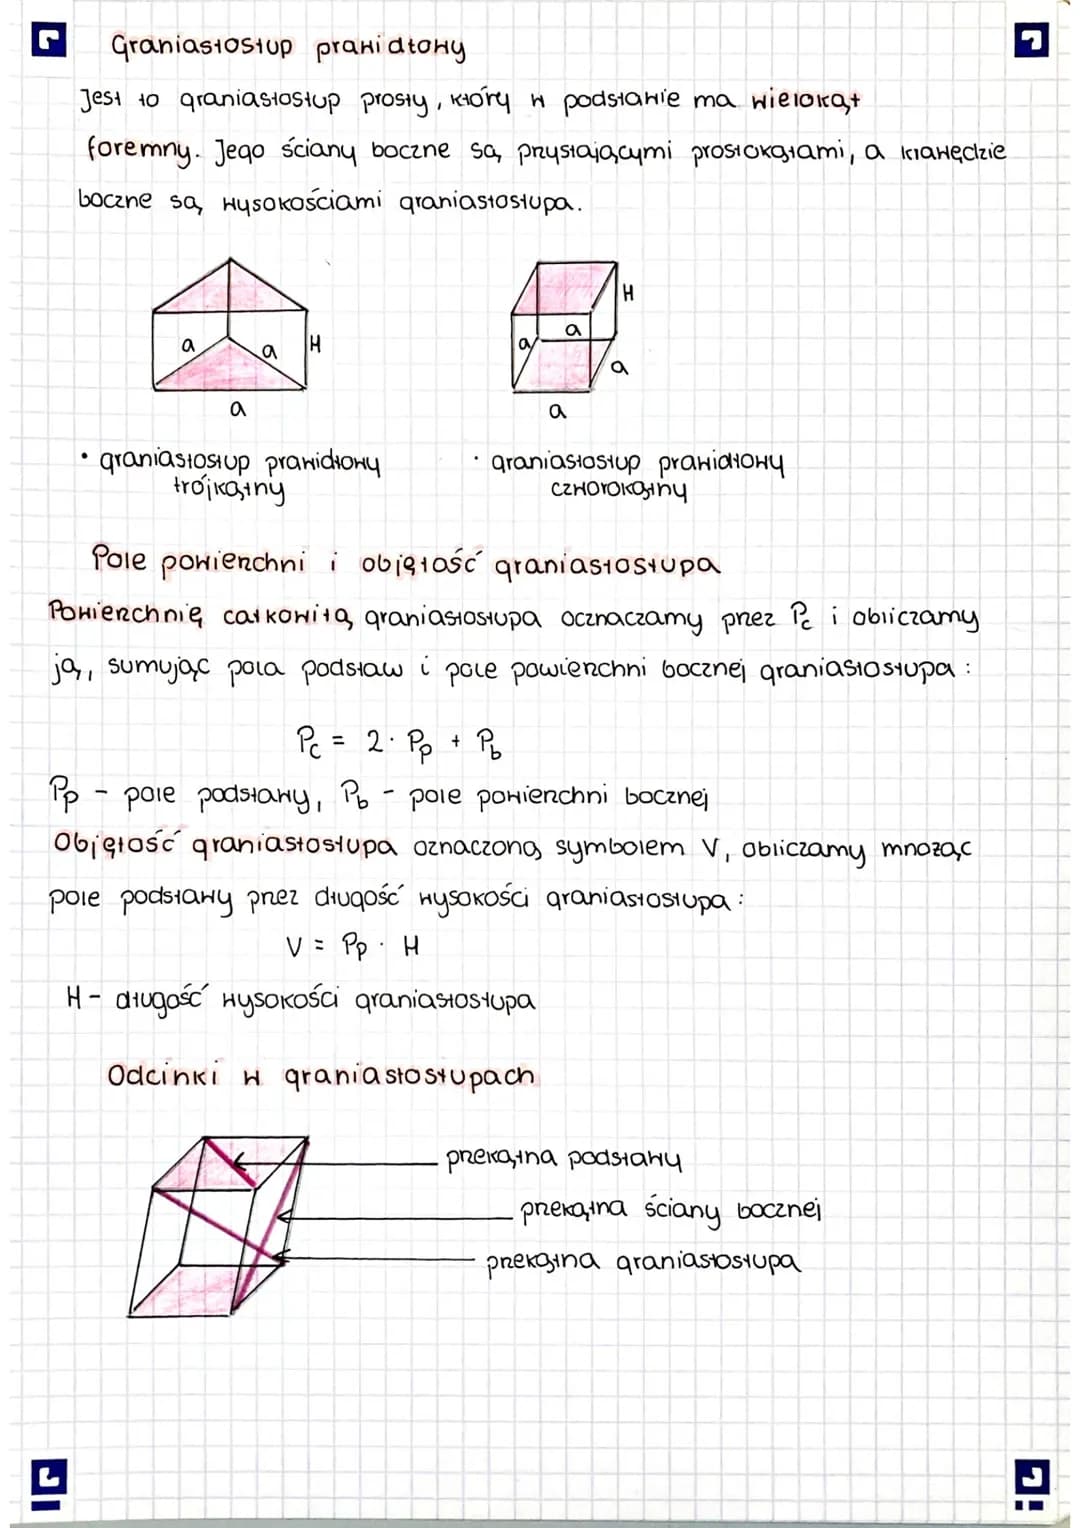 Graniastosłup prawidłowy
Jest to graniastosłup prosty, który w podstawie ma wielokąt
foremny. Jego ściany boczne są przystającymi prostokątami, a krawędzie
boczne są wysokościami graniastosłupa.
a a H
a
H
a a
a
a
• graniastosłup prawidłowy
trójkątny
• graniastosłup prawidłowy
czworokątny
Pole powierzchni i objętość graniastosłupa
Powierzchnię całkowitą graniastosłupa ocznaczamy przez Pc i obliczamy
ją, sumując pola podstaw i pole powierzchni bocznej graniastosłupa:
Pc = 2 · Pp + Pb
Pp - pole podstawy, Pb - pole powierzchni bocznej
Objętość graniastosłupa oznaczoną symbolem V, obliczamy mnożąc
pole podstawy przez długość wysokości graniastosłupa:
V = Pp · H
H - długość wysokości graniastosłupa
Odcinki w graniastosłupach
przekątna podstawy
przekątna ściany bocznej
przekątna graniastosłupa